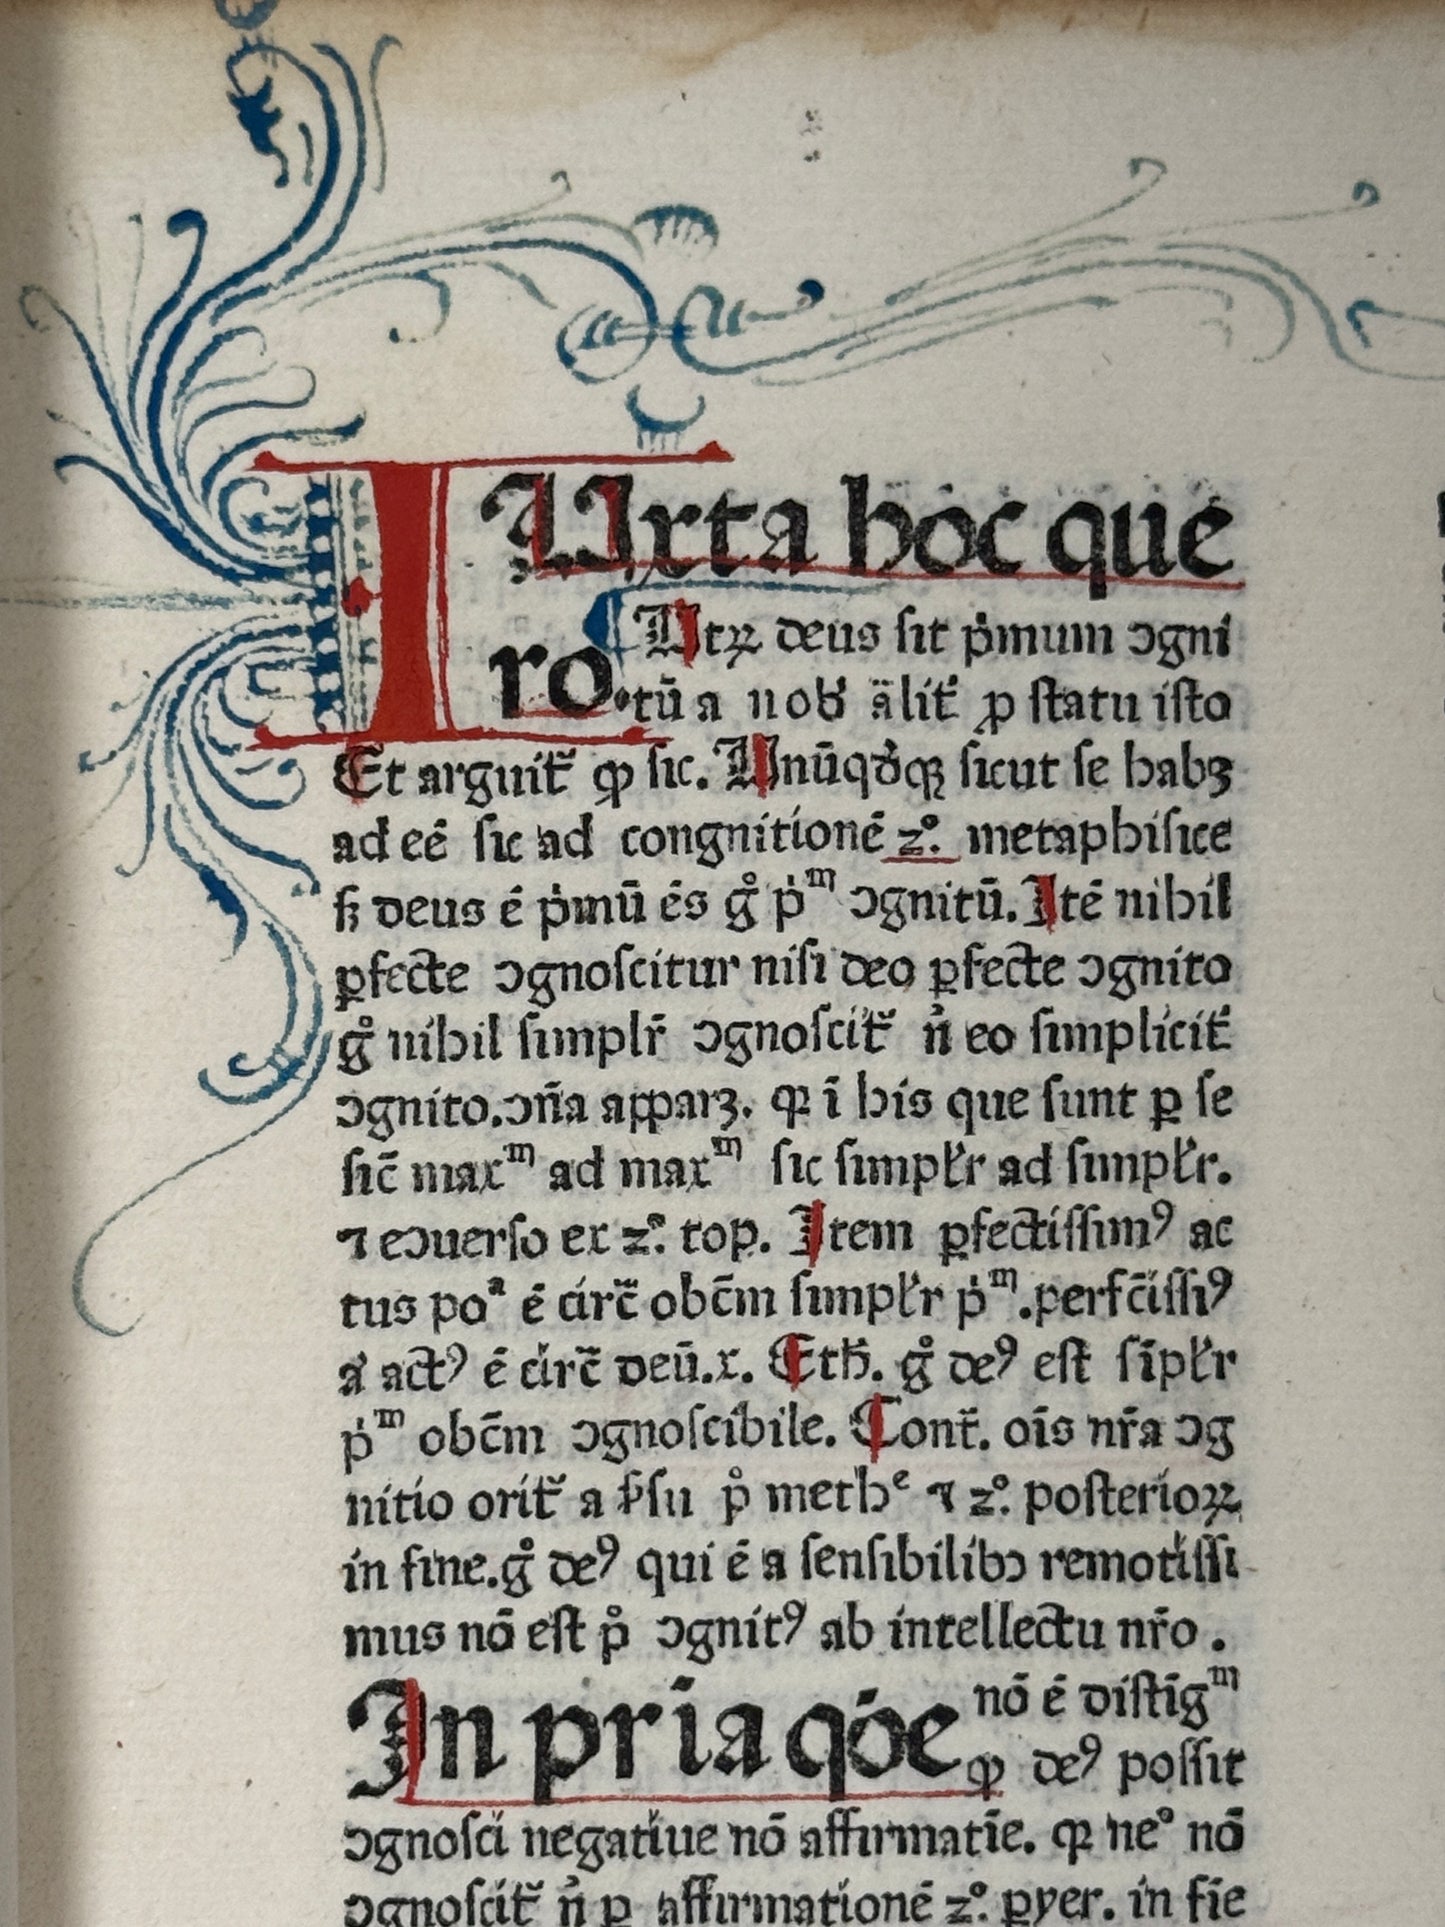 IUxta hoc que
ro. Utꝝ deus sit pͥmum ꝯgni
tū a nob̕ aͤlit᷑ ꝓ statu isto
Et arguit᷑ ꝙ sic. Unūqd̕qꝫ sicut se habꝫ
ad eē sic ad congnitionē 2°. metaphisice
sꝫ deus ē pͥmū ēs gͦ pͥᵐ ꝯgnitū. Itē nihil
ꝑfecte ꝯgnoscitur nisi deo ꝑfecte ꝯgnito
gͦ nihil simplr̄ ꝯgnoscit᷑ nͥ eo simplicit᷑
ꝯgnito. ꝯña apparꝫ. qꝛ ī his que sunt ꝑ se
sic̄ maxᵐ ad maxᵐ sic simpl̕r ad simpl̕r.
⁊ eꝯuerso ex 2°. top. Item ꝑfectissimꝰ ac
tus poᵃ ē circ̄ obc̄m simpl̕r pͥᵐ. perfc̄issiꝰ
a̕ actꝰ ē circ̄ deū. x. Eth̕. gͦ deꝰ est sīpl̕r
pͥᵐ obc̄m ꝯgnoscibile. Cont᷑. oīs nr̄a ꝯg
nitio orit᷑ a su pͦ methᵉ ⁊ 2°. posterioꝝ
in fine. gͦ deꝰ qui ē a sensibilibꝯ remotissi
mus nō est pͦ ꝯgnitꝰ ab intellectu nr̄o.
In pria qōe nō ē distīgᵐ
ꝙ deꝰ possit
ꝯgnosci negatiue nō affirmatīe. qꝛ ne° nō
ꝯgnoscit᷑ nͥ ꝑ affirmationē 2°. ꝑyer. in fīe